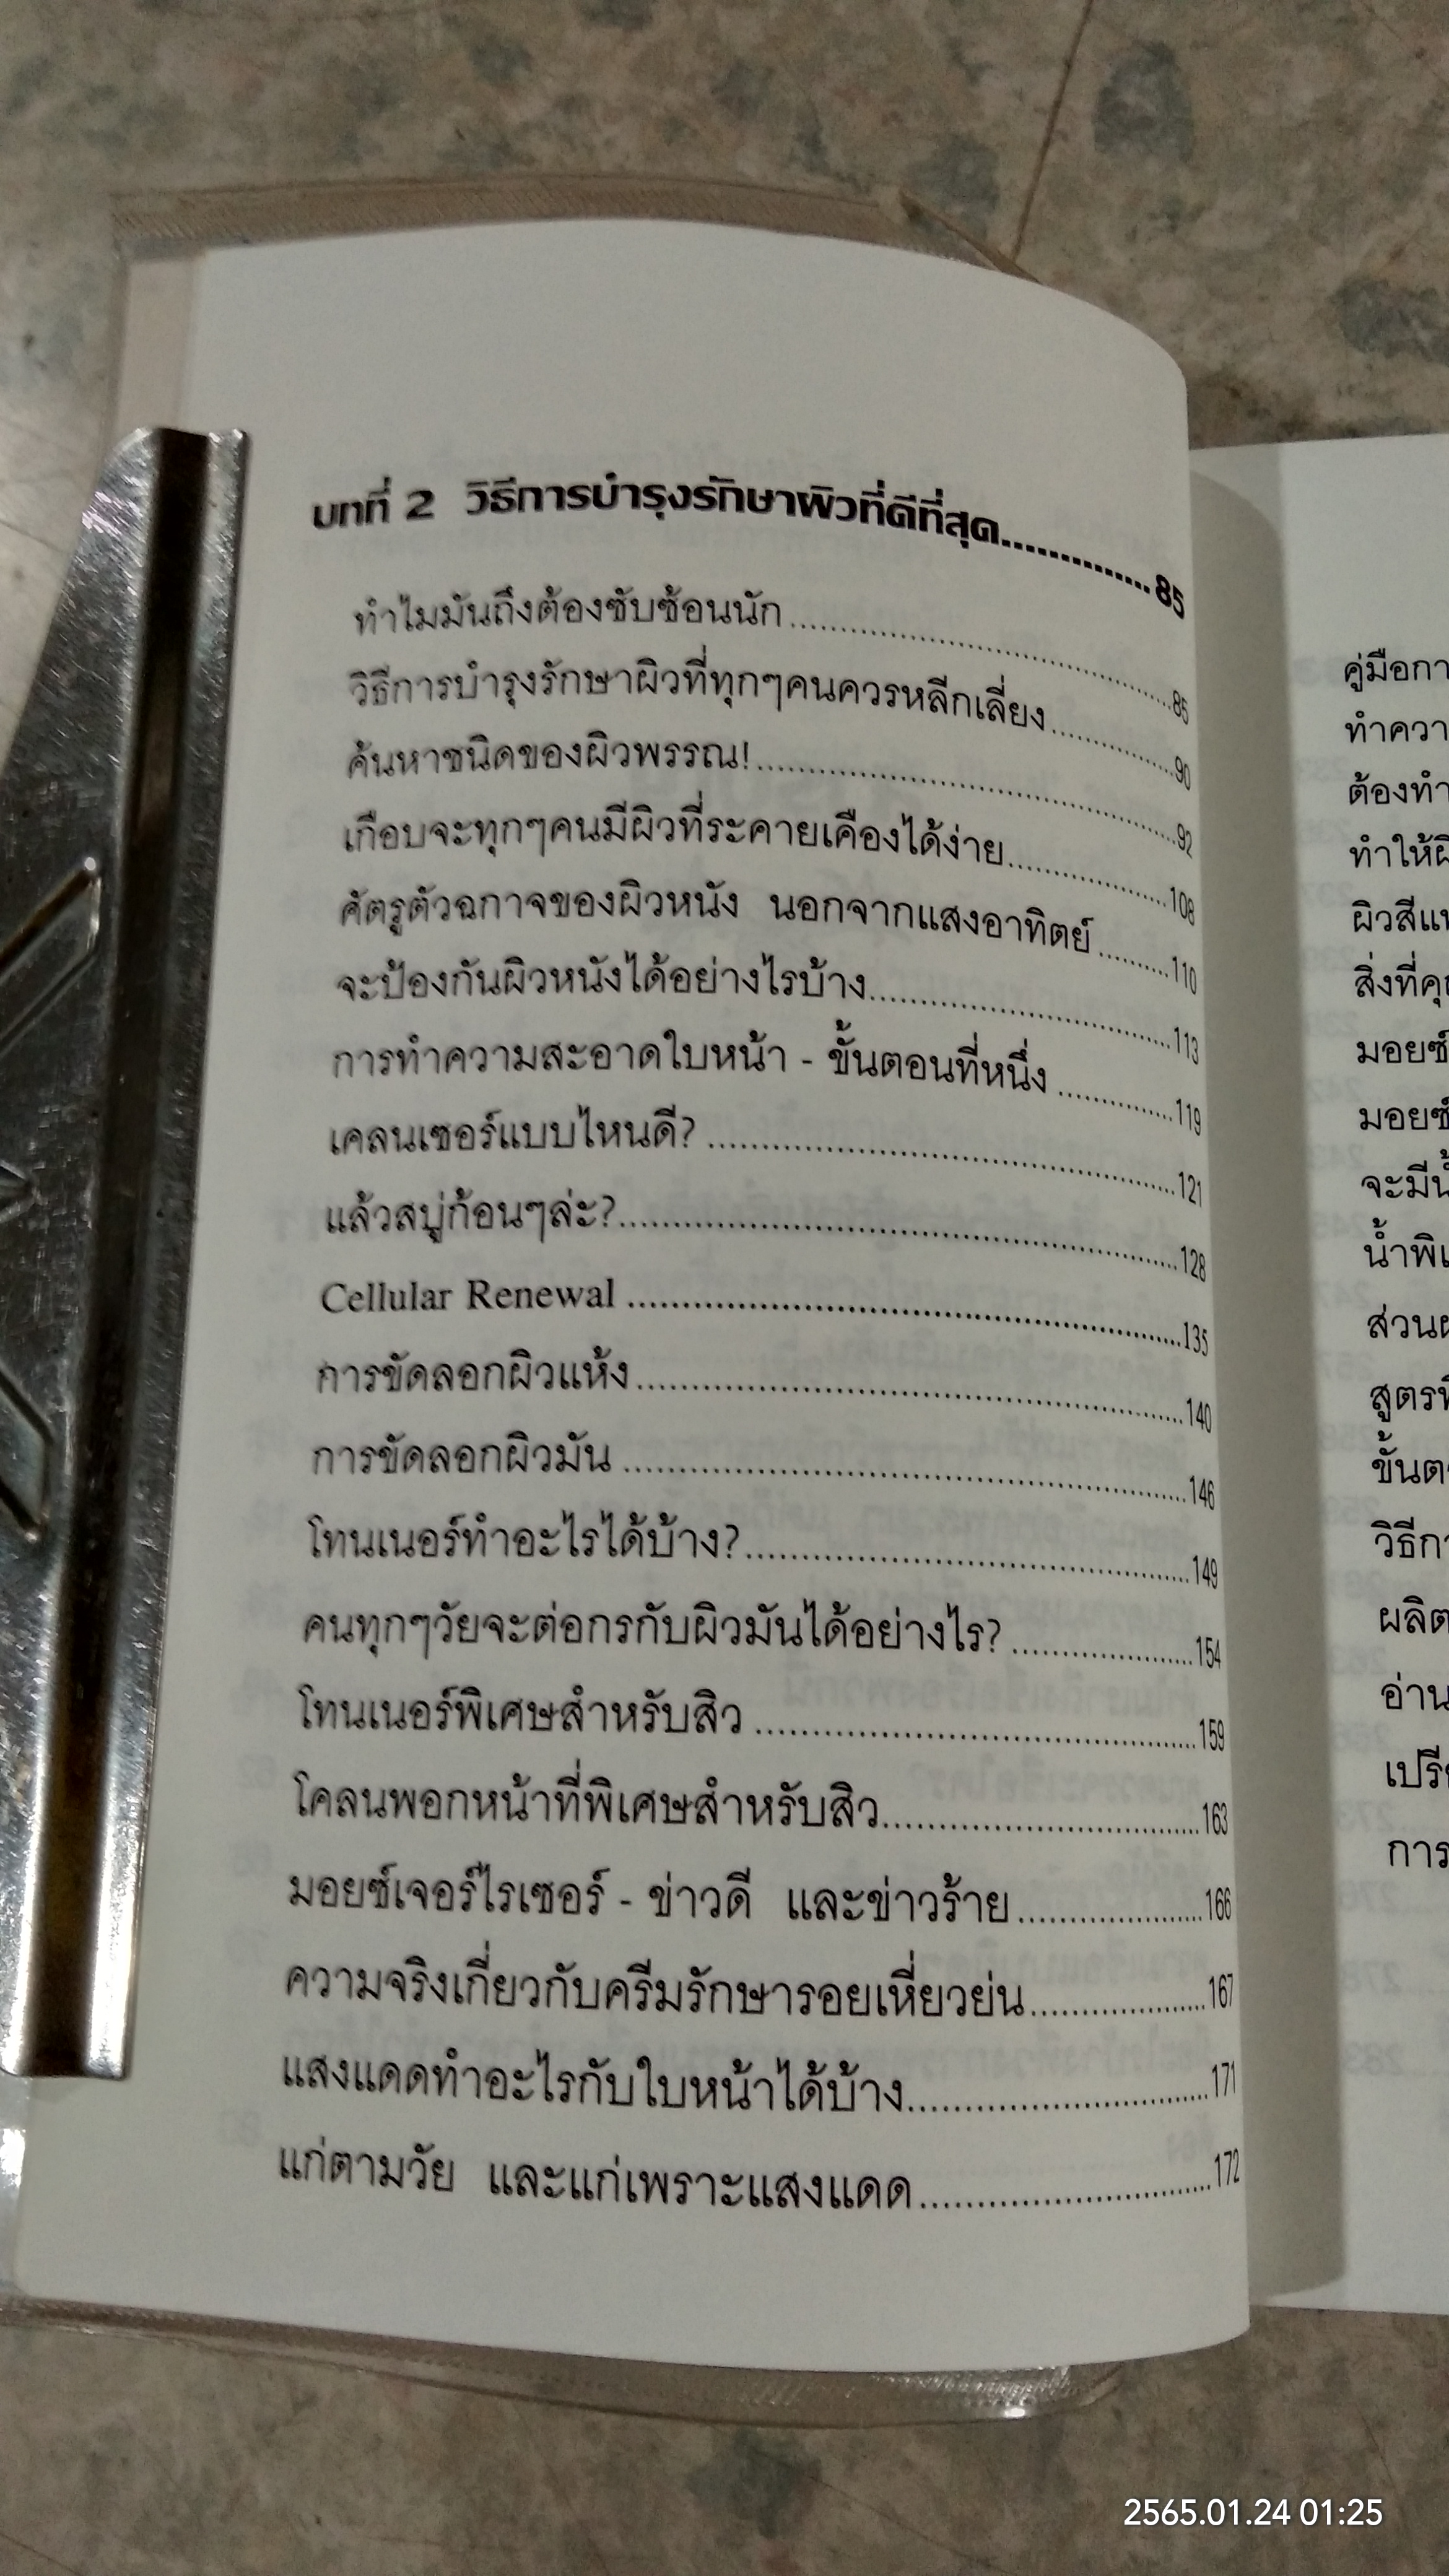 บทที่ 2 วิธีการบำรุงรักษาผิวที่ดีที่สุด..............85
ทำไมมันถึงต้องซับซ้อนนัก..............85
วิธีการบำรุงรักษาผิวที่ทุกๆคนควรหลีกเลี่ยง..............90
ค้นหาชนิดของผิวพรรณ!..............92
เกือบจะทุกๆคนมีผิวที่ระคายเคืองได้ง่าย..............108
ศัตรูตัวฉกาจของผิวหนัง นอกจากแสงอาทิตย์..............110
จะป้องกันผิวหนังได้อย่างไรบ้าง..............113
การทำความสะอาดใบหน้า - ขั้นตอนที่หนึ่ง..............119
เคลนเซอร์แบบไหนดี?..............121
แล้วสบู่ก้อนๆล่ะ?..............128
Cellular Renewal..............135
การขัดลอกผิวแห้ง..............140
การขัดลอกผิวมัน..............146
โทนเนอร์ทำอะไรได้บ้าง?..............149
คนทุกๆวัยจะต่อกรกับผิวมันได้อย่างไร?..............154
โทนเนอร์พิเศษสำหรับสิว..............159
โคลนพอกหน้าที่พิเศษสำหรับสิว..............163
มอยซ์เจอร์ไรเซอร์ - ข่าวดี และข่าวร้าย..............166
ความจริงเกี่ยวกับครีมรักษารอยเหี่ยวย่น..............167
แสงแดดทำอะไรกับใบหน้าได้บ้าง..............171
แก่ตามวัย และแก่เพราะแสงแดด..............172
คู่มือกา
ทำควา
ต้องทำ
ทำให้ผิ
ผิวสีแ
สิ่งที่คุ
มอยซ์
มอยซ์
จะมีน้
น้ำพิเ
ส่วนผ
สูตรพิ
ขั้นต
วิธีกา
ผลิต
อ่าน
เปรี
การ
2565.01.24 01:25